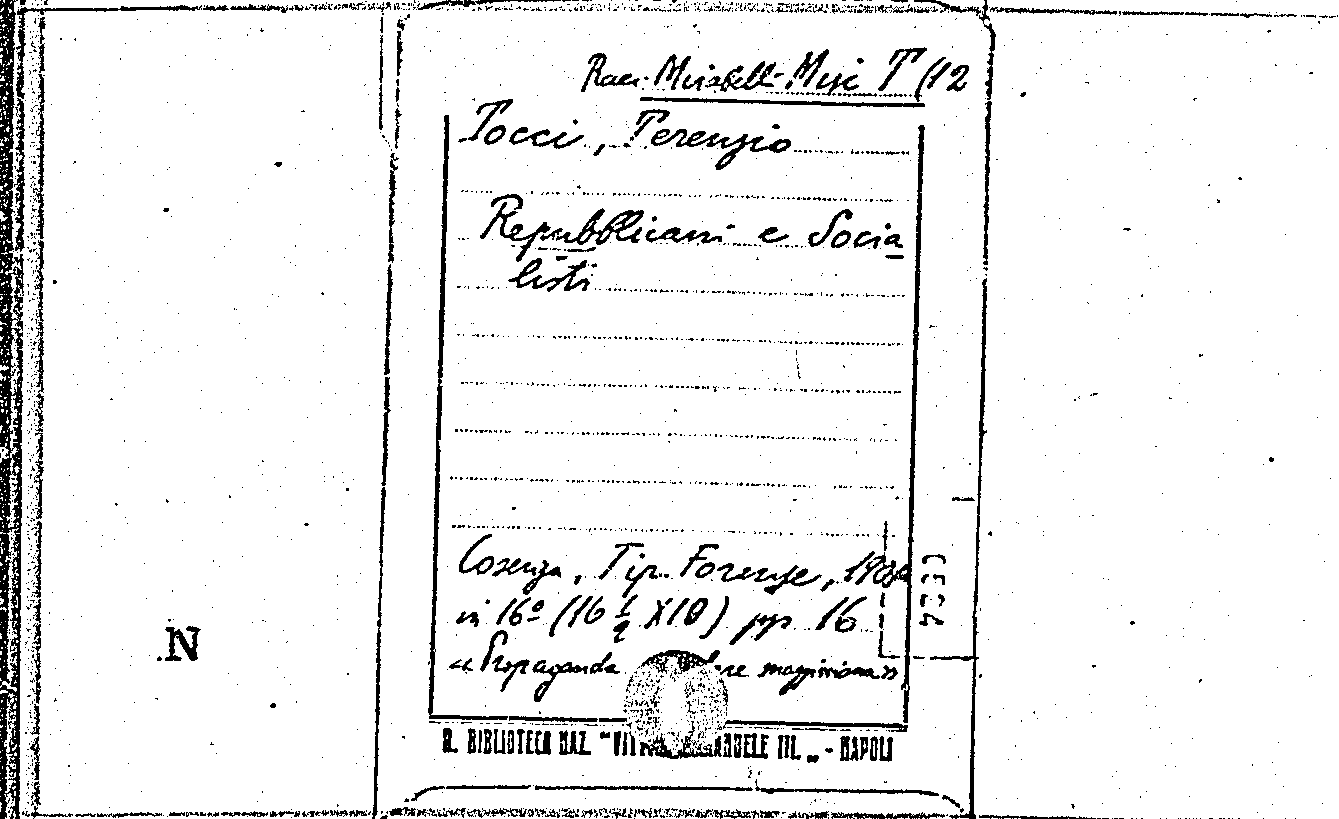 Racc. Mirabelli-Misc T (12
Tocci, Terenzio
Repubblicani e Socia
listi
Cosenza, Tip. Forense,
in 16º (16 ½ X10) pp 16
"Propaganda mazziniana"
R. BIBLIOTECA NAZ. "VITT III. „ - NAPOLI
N